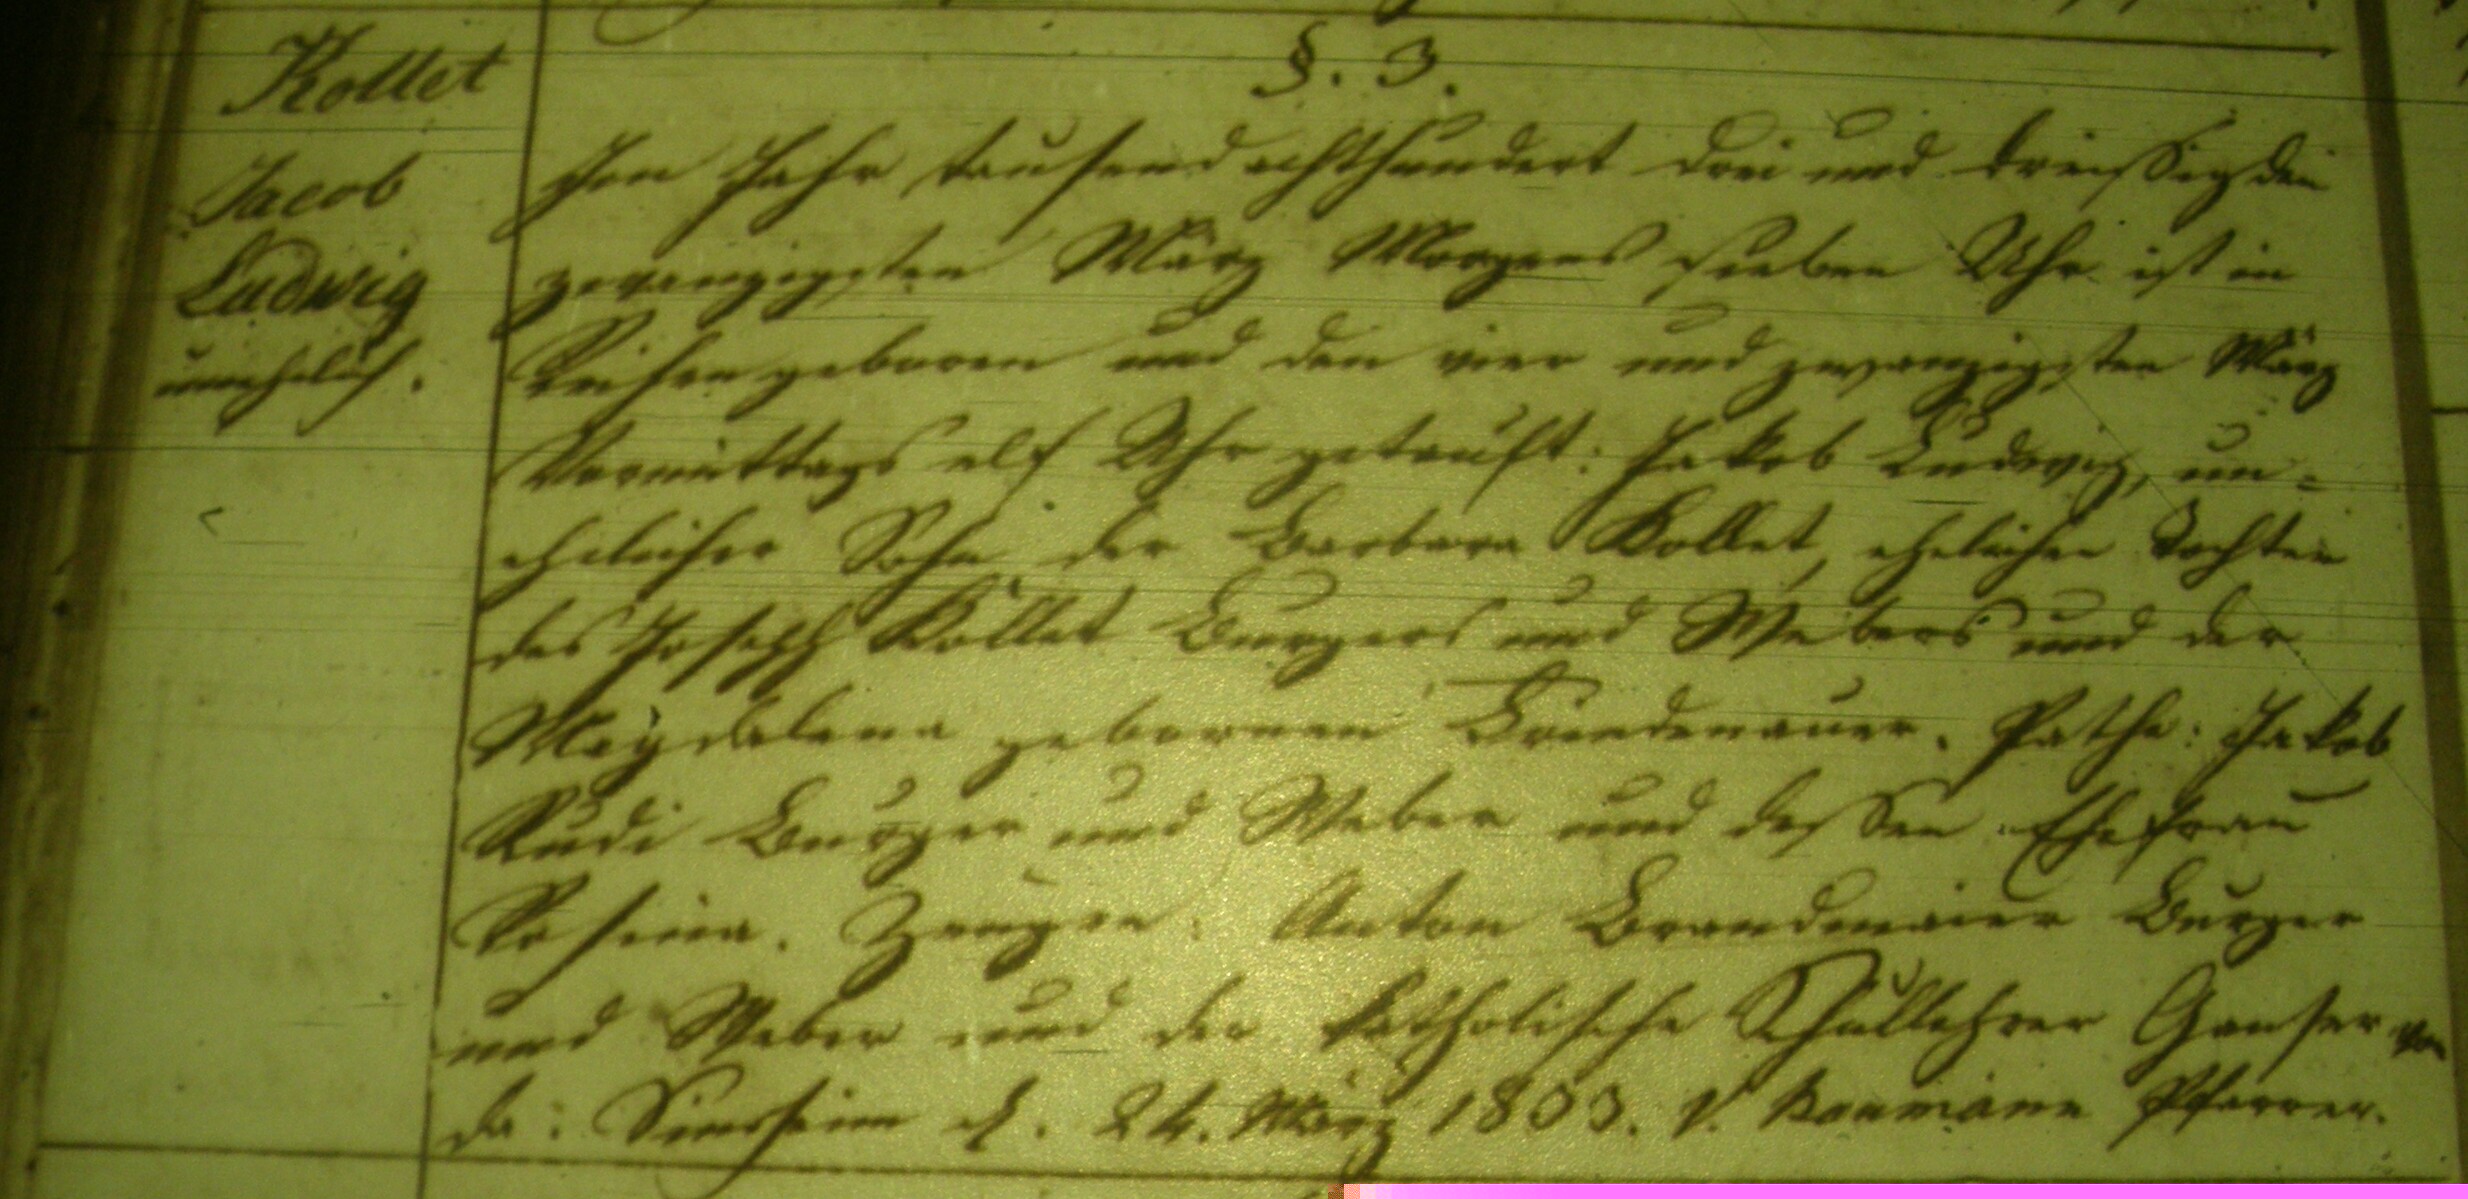 §. 3.
Kollet
Jacob
Ludwig
unehelich.
Im Jahr tausend achthundert drei und dreißig den
zwanzigsten März Morgens sieben Uhr ist in
Reihen geboren und den vier und zwanzigsten März
Vormittags elf Uhr getauft: Jakob Ludwig, un-
ehelicher Sohn der Barbara Kollet, ehelichen Tochter
des Joseph Kollet Burgers und Webers und der
Magdalena gebornen Pathe: Jakob
Rudi Burger und Weber und dessen Ehefrau
Rosina. Zeugen: Anton Brandmaier Burger
und Weber und der katholische Schullehrer Ganser von
da. Sinsheim d. 24. März 1833. Pfarrer.